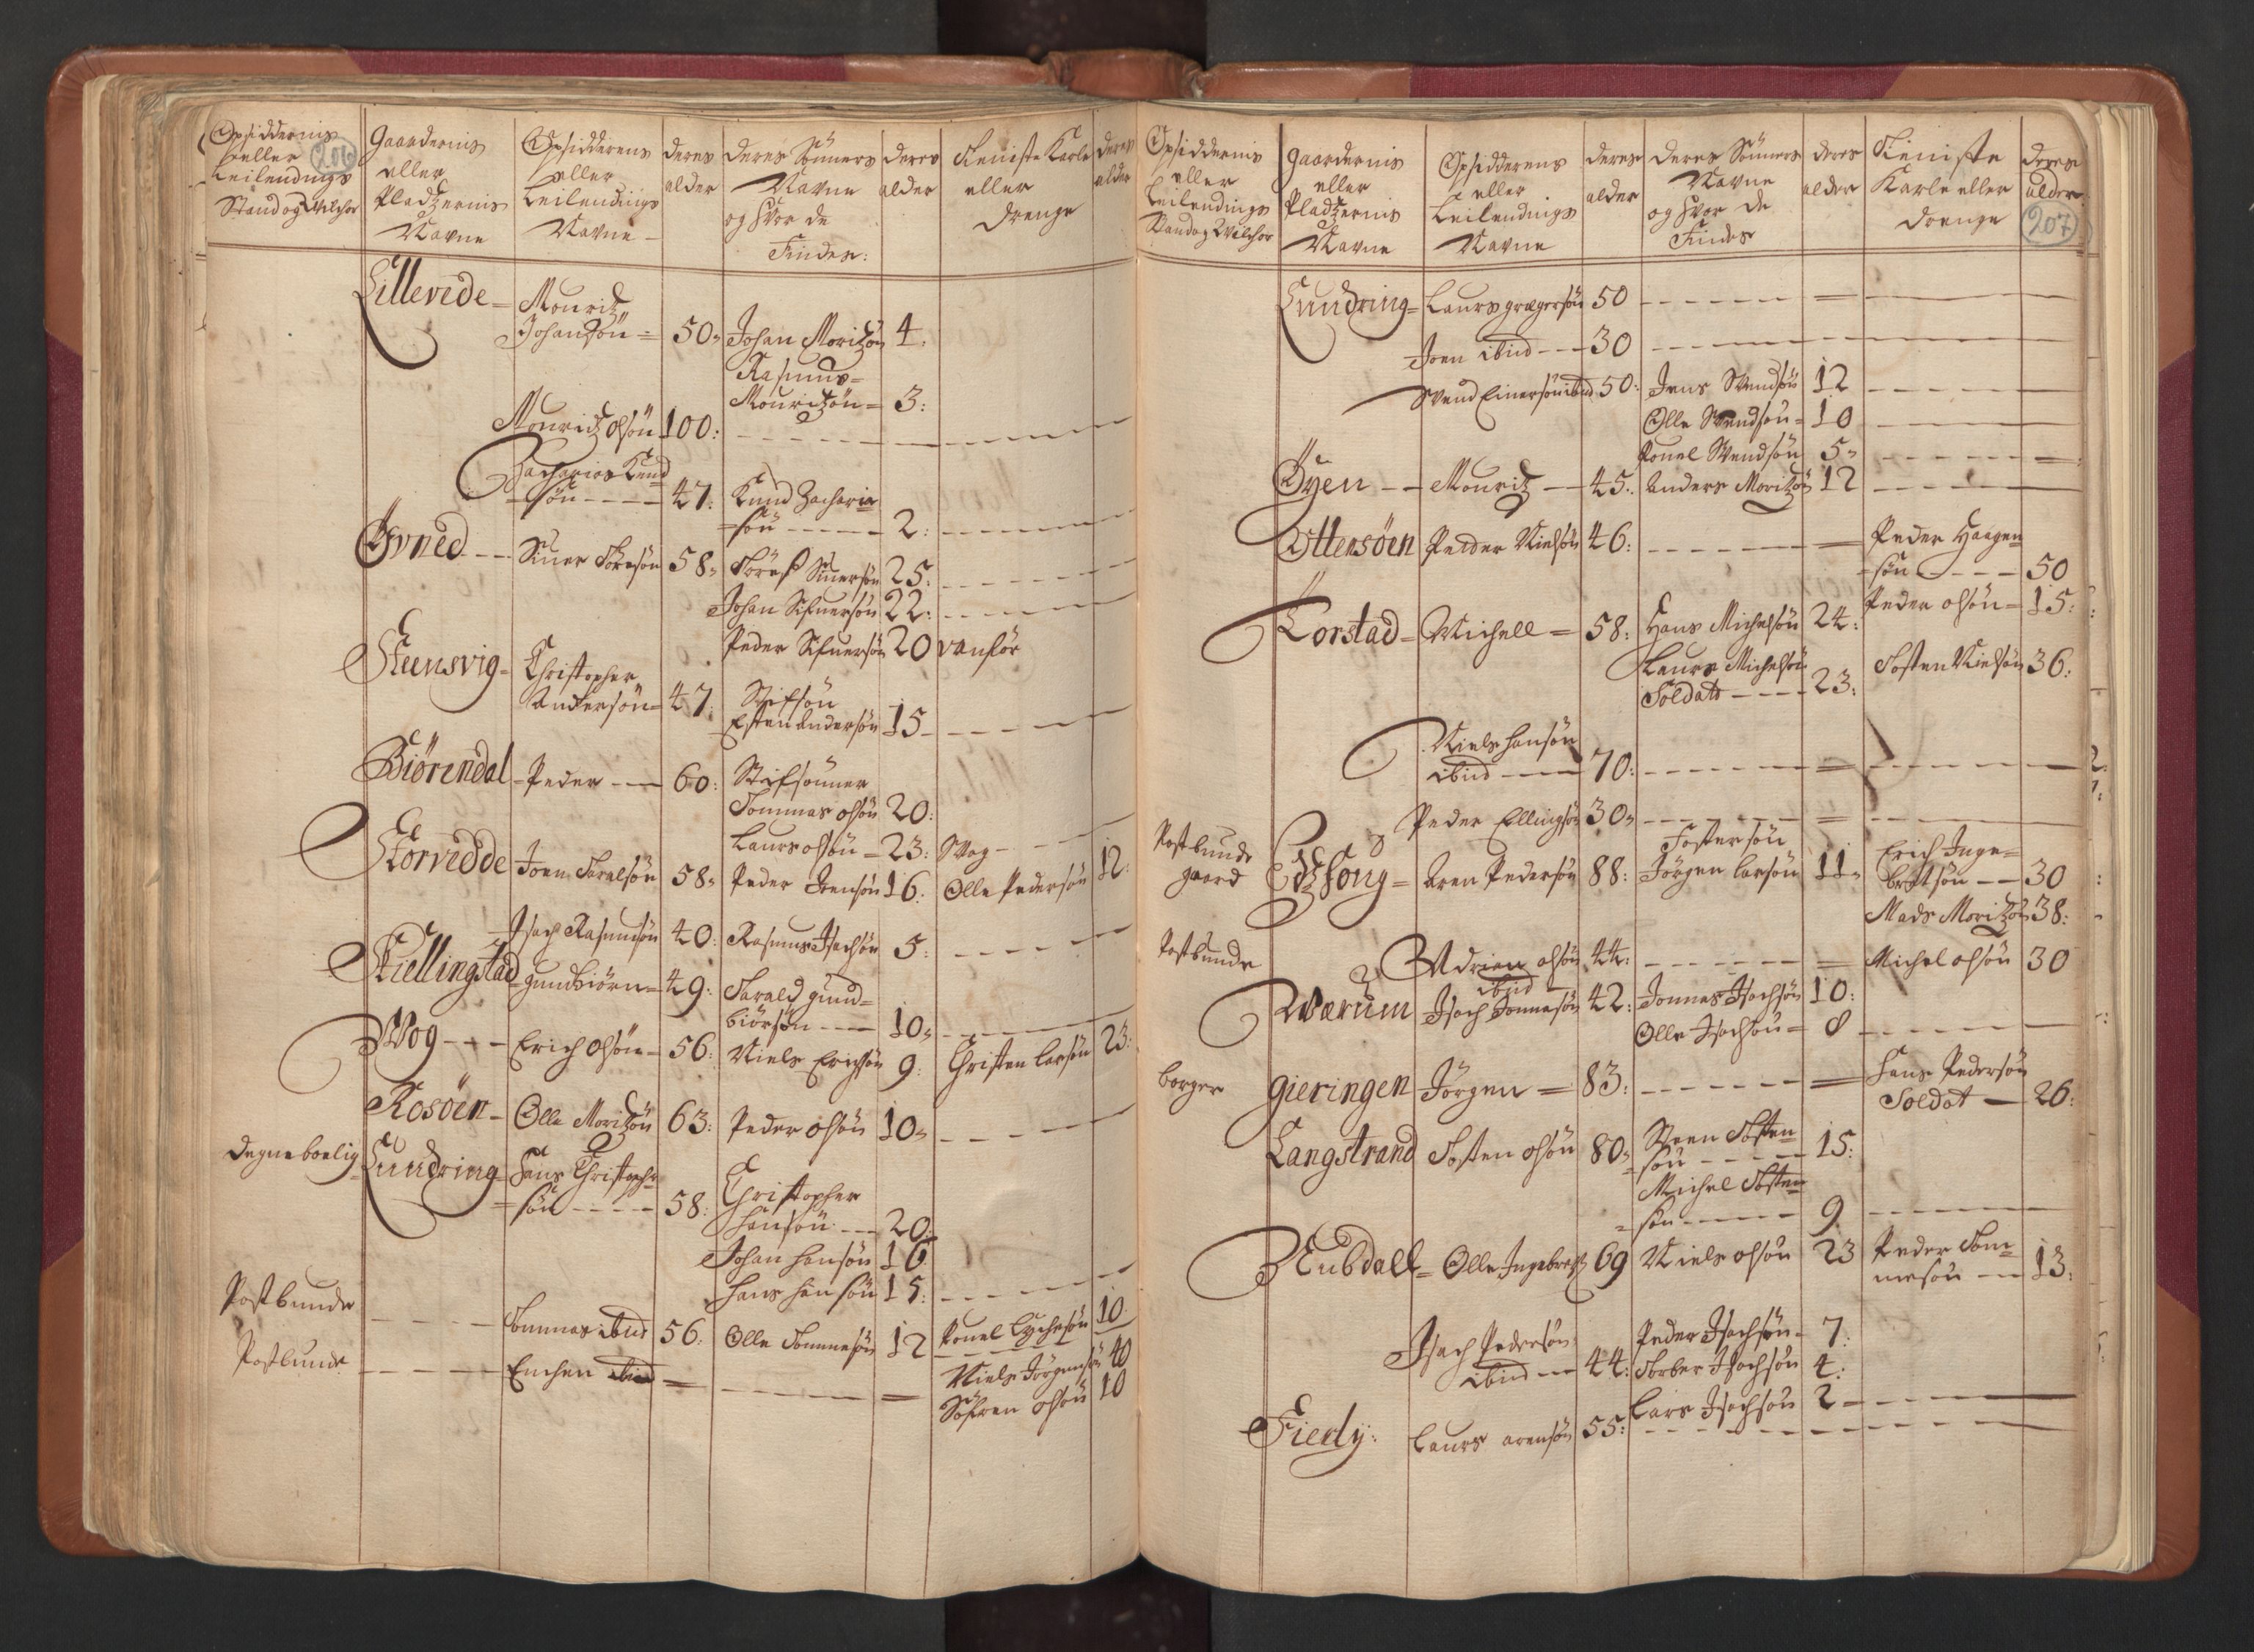 Opsiddernis eller Leilendings Stand og Vilchor
206
Gaardernis eller Pladzernis Navne
Opsidderens eller Leilendings Navne
deres alder
deres Sönners Navne og hvor de Findes:
deres alder
Tieniste Karle eller drenge
deres alder
Lillevide - Mouritz Johansön = 50: Johan Moritzön 4:
Rasmus Mouritzön = 3:
Mouritz olsön 100:
Zacharias Knud
sön 47: Knud Zacharia
sön 2:
Öfvned Siuer Toresön 58: Töres Siuersön 25:
Johan Sifuersön 22:
Peder Sifuersön 20 vanför
Steensvig = Christopher
Andersön = 47: Stifsön
Esten Andersön 15
Biörendal - Peder 60: Stifsönner
Tommas olsön 20:
Laurs olsön 23: Wog
Storvedde Joen Taralsön 58: Peder Jensön 16: Olle Pedersön 12:
Isach Rasmusön 40: Rasmus Isachsön 5:
Kiellingstad gundbiörn = 49: Tarald gund=
biörsön 10:
Wog Erich olsön = 56: Niels Erichsön 9: Christen Larsön 23:
Rosöen - Olle Moritzön 63: Peder olsön 10:
Degneboelig Lundring = Hans Christophr
sön 58: Christopher
hansön 20:
Johan hansön 16
hans hansön 15:
Postbunde Tommas ibid 56: Olle Tommesön 12 Pouel Lychesön 10
Postbunde Enchen ibid = Niels Jörgensön 40
Söfren olsön 10
Opsiddernis eller Leilendings Stand og Vilchor
Gaardernis eller Pladzernis Navne
Opsidderens eller Leilendings Navne
deres alder
deres Sönners Navne og hvor de Findes
deres alder
Tieniste Karle eller drenge
deres alder
207
Lundring = Laurs gregersön 50
Joen ibid 30
Svend Einersön ibid 50: Jens Svendsön 12
Olle Svendsön = 10
Pouel Svendsön 5:
Öyen Mouritz 45: Anders Moritzön 12
Ottersöen Peder Nielsön 46: Peder Haagen
sön 50
Peder olsön = 15:
Korstad = Michell = 58: Hans Michelsön 24:
Laurs Michelsön
Soldat 23: Tosten Nielsön 36:
Niels hansön
ibid 70:
Peder Ellingsön 30:
Postbunde gaard Aren Pedersön 88: Fostersön
Jörgen Larsön 11: Erich Inge=
bretsön 30
Mads Moritzön 38:
Postbunde Adrien olsön 44: Michel olsön 30
ibid
Wærum Isach Jonnasön 42: Jonnas Isachsön 10:
Olle Isachsön = 8
borger gieringen Jörgen = 83: Hans Pedersön
Soldat 26:
Langstrand Tosten olsön 80: Steen Tosten
sön 15:
Michel Tosten
sön 9
Nubdall = Olle Ingebretz 69 Niels olsön 23 Peder Tom=
mesön 13:
Isach Pedersön Peder Isachsön 7:
ibid 44: Torber Isachsön 4:
Lars Isachsön 2
Fiedy: Laurs arensön 55: